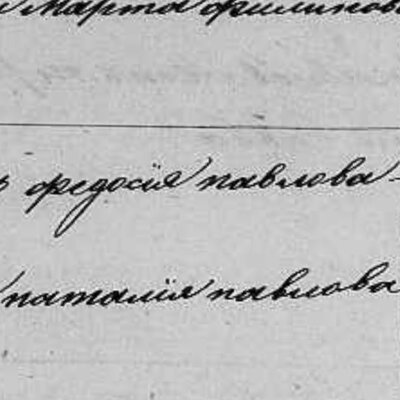 Марта филипова
федосія павлова
наталія павлова